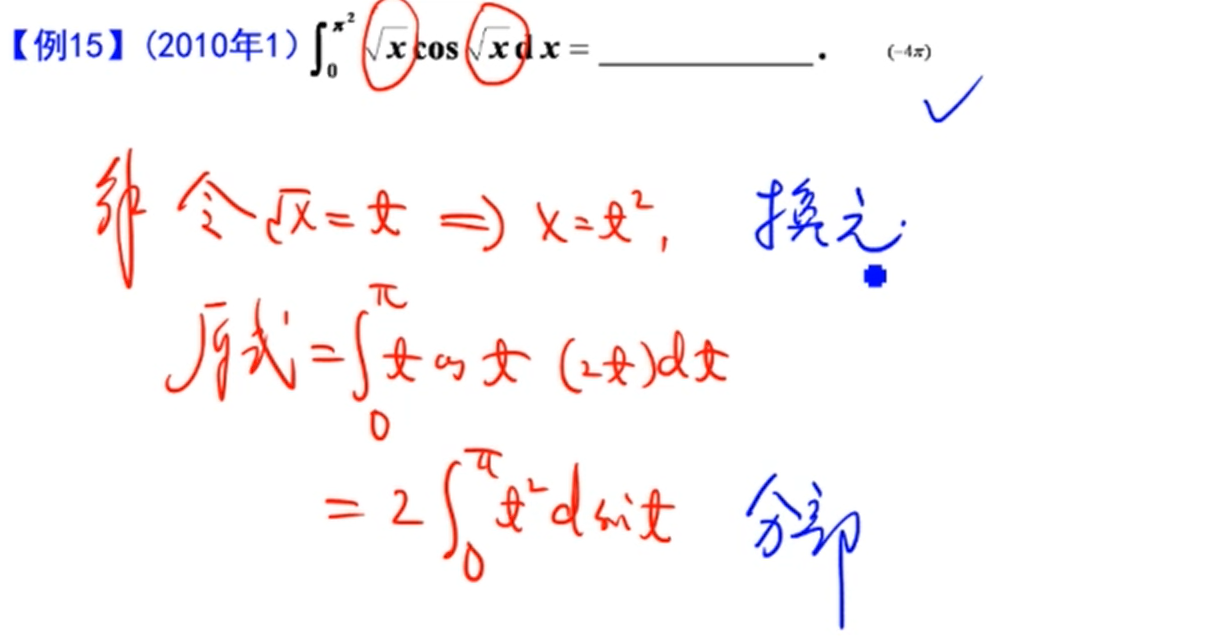 【例15】(2010年1) ∫₀^{π²} √x cos √x dx = ____________. (-4π)
解 令 √x = t ⇒ x = t², 换元.
原式 = ∫₀^π t cos t (2t)dt
= 2 ∫₀^π t² d sin t 分部